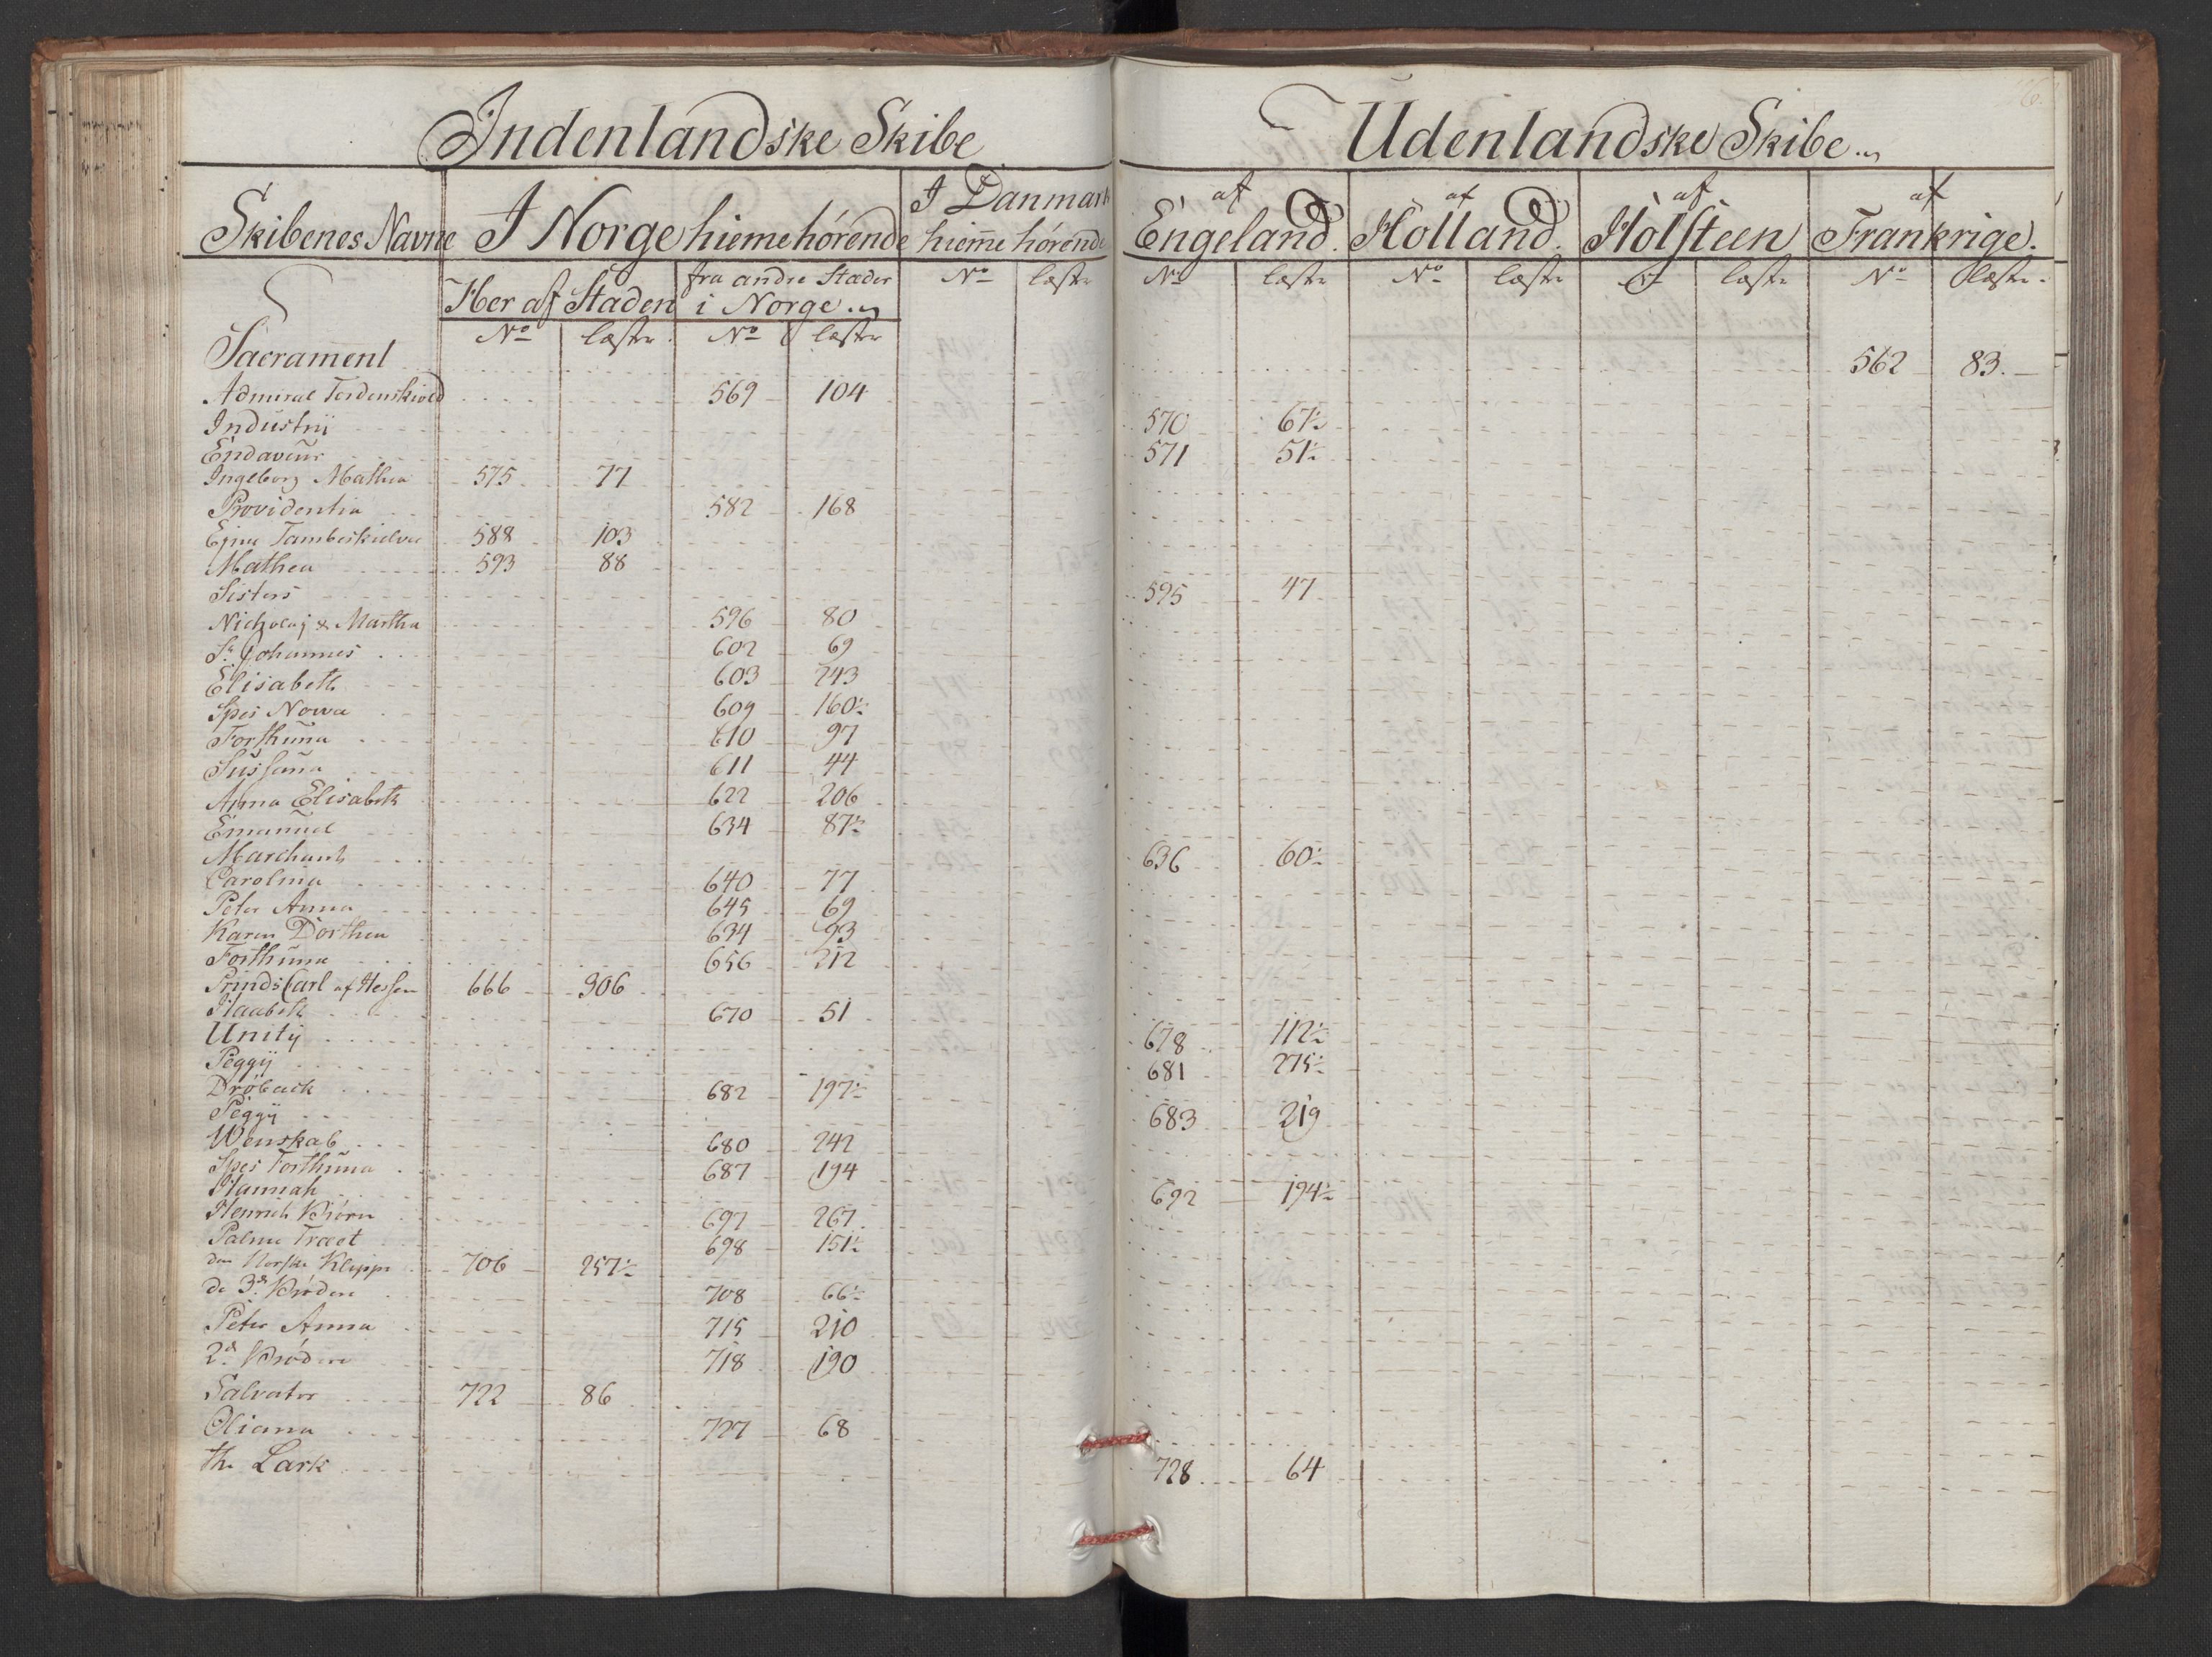 Indenlandske Skibe
Udenlandske Skibe
Skibenes Navne
I Norge hiemehørende
I Danmark hiem̄e hørende
af Engeland.
af Holland.
af Holsteen
af Frankrige.
Her af Staden
fra andre Stæder i Norge
No læster No læster No læster No læster No læster læster No læster
Sacrament 562 83.
Admiral Tordenskiold 569 104
Industrij 570 67½
Endavour 571 51½
Ingeborg Mathea 575 77
Providentia 582 168
Ejnar Tambeskielver 588 103
Mathea 593 88
Sisters 595 47
Nicholaj & Martha 596 80
St. Johannes 602 69
Elisabeth 603 243
Spes Nowa 609 160½
Forthuna 610 97
Sussana 611 44
Anna Elisabeth 622 206
Emanuel 634 87½
Marchant 636 60½
Carolina 640 77
Peter Anna 645 69
Karen Dorthea 634 93
Forthuna 656 212
Prinds Carl af Hessen 666 306
Haabeth 670 51
Unitij 678 112½
Peggij 681 275½
Drøback 682 197½
Peggij 683 219
Wenskab 680 242
Spes Forthuna 687 194
Hannah 692 194½
Henrich Biørn 697 267
Palme Træet 698 151½
den Norske Klippe 706 257½
de 3de Brødere 708 66½
Peter Anna 715 210
2de Brødre 718 190
Salvator 722 86
Oliana 727 68
the Lark 728 64